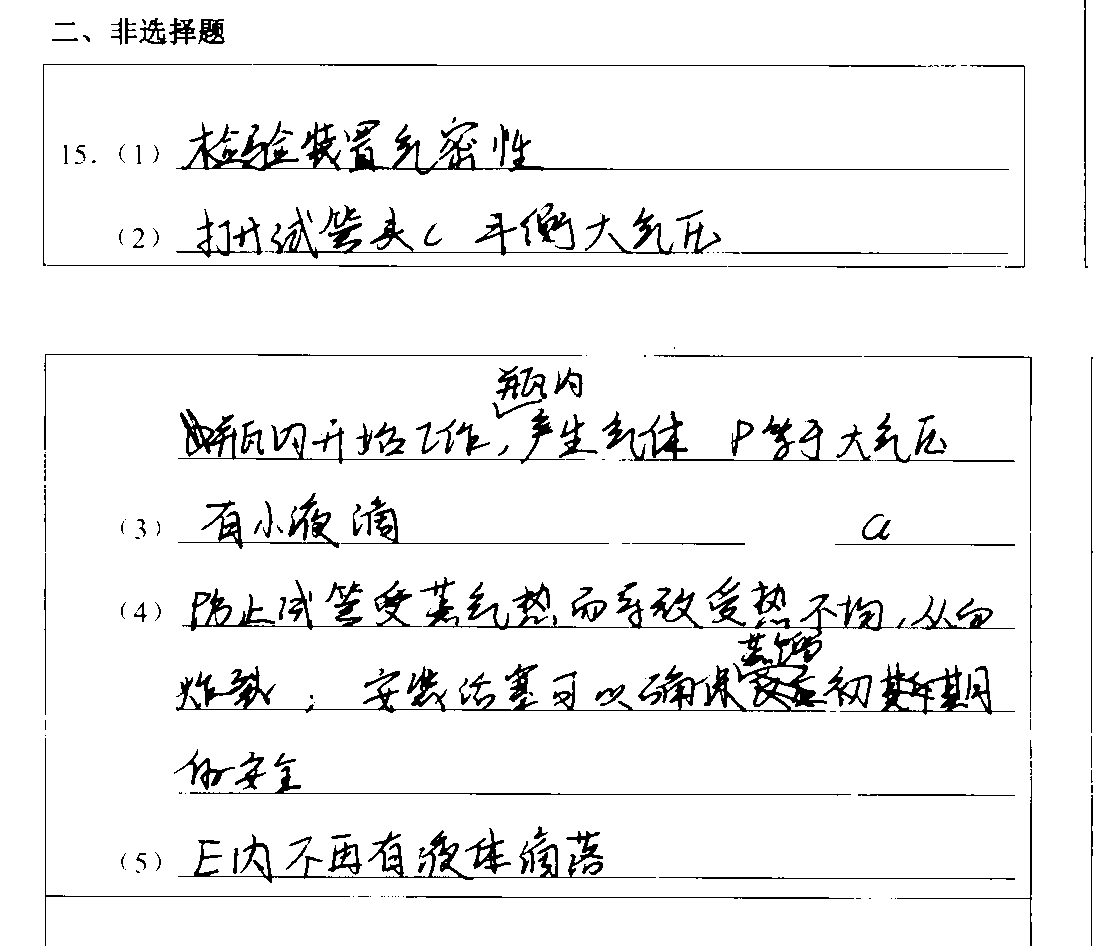 二、非选择题
15.（1）检验装置气密性
（2）打开试管夹C 平衡大气压
瓶内
瓶内开始工作，产生气体 P等于大气压
（3）有小液滴 a
（4）防止试管受蒸气热而导致受热不均，从而
蒸馏
炸裂；安装活塞可以确保初期
的安全
（5）E内不再有液体滴落